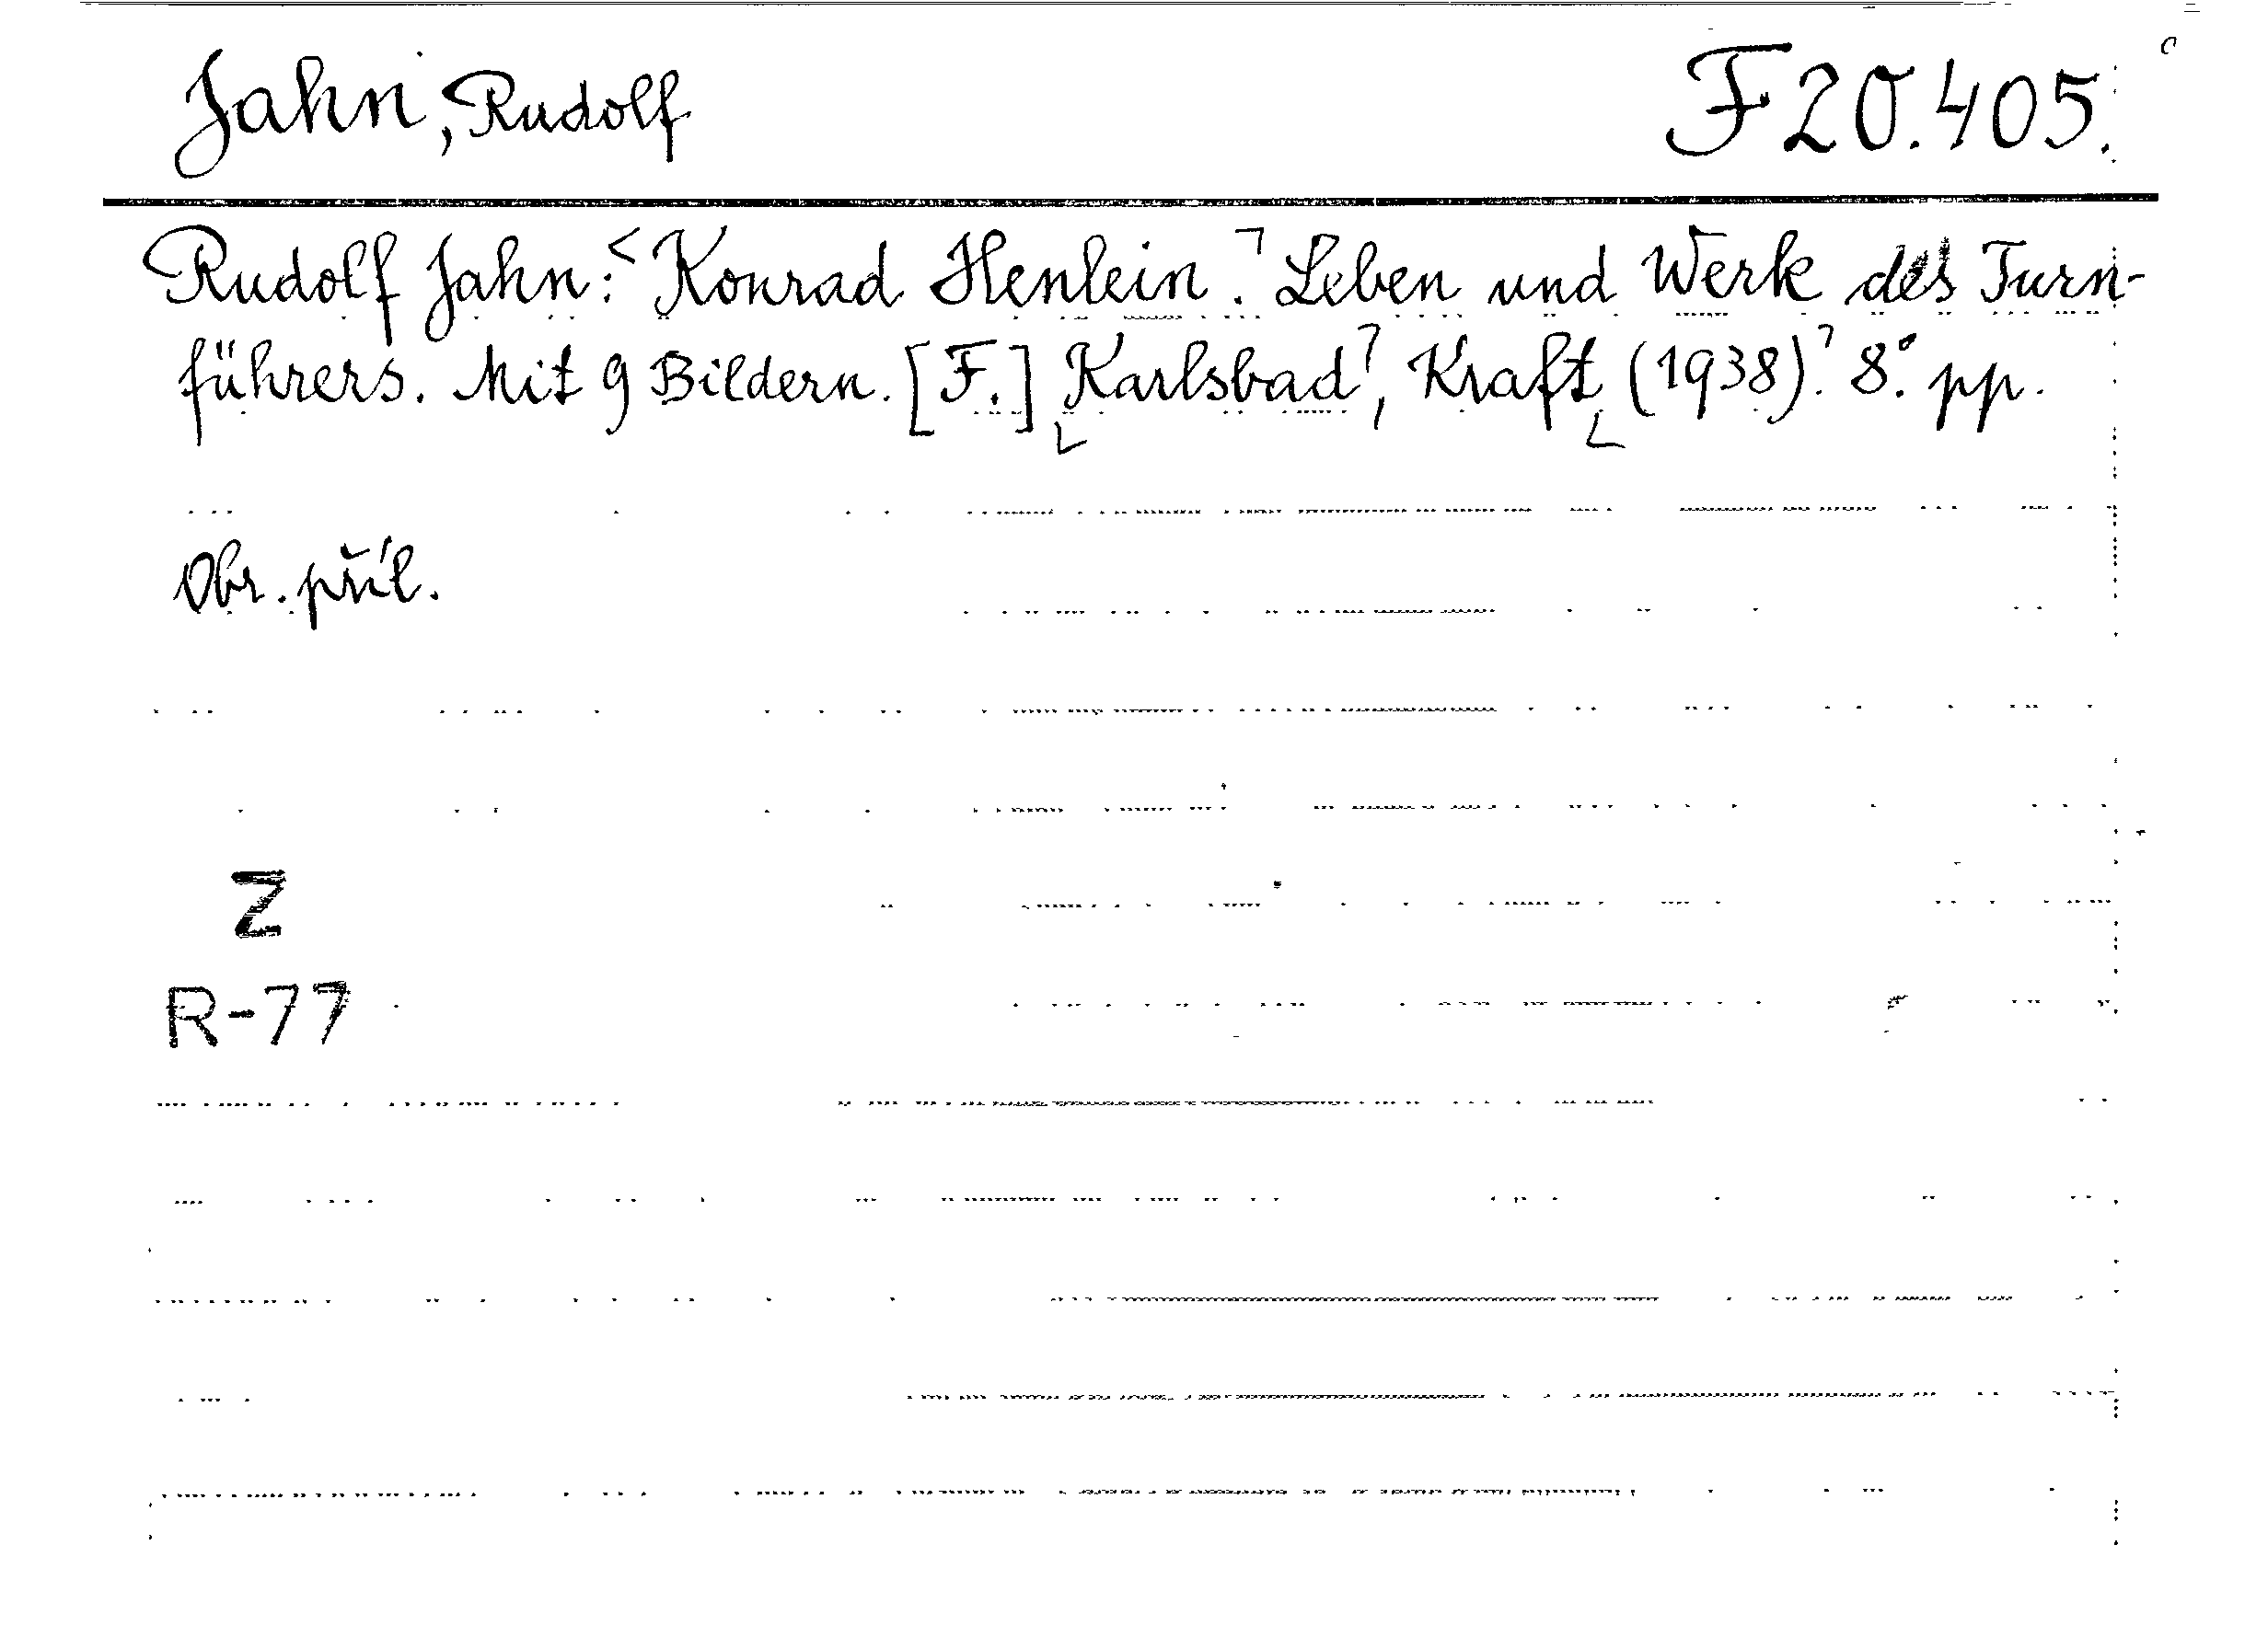 Jahn, Rudolf
F 20.405.
Rudolf Jahn: Konrad Henlein. Leben und Werk des Turn-
führers. Mit 9 Bildern. [F.] Karlsbad, Kraft (1938). 8°. pp.
Obr. příl.
Z
R-77